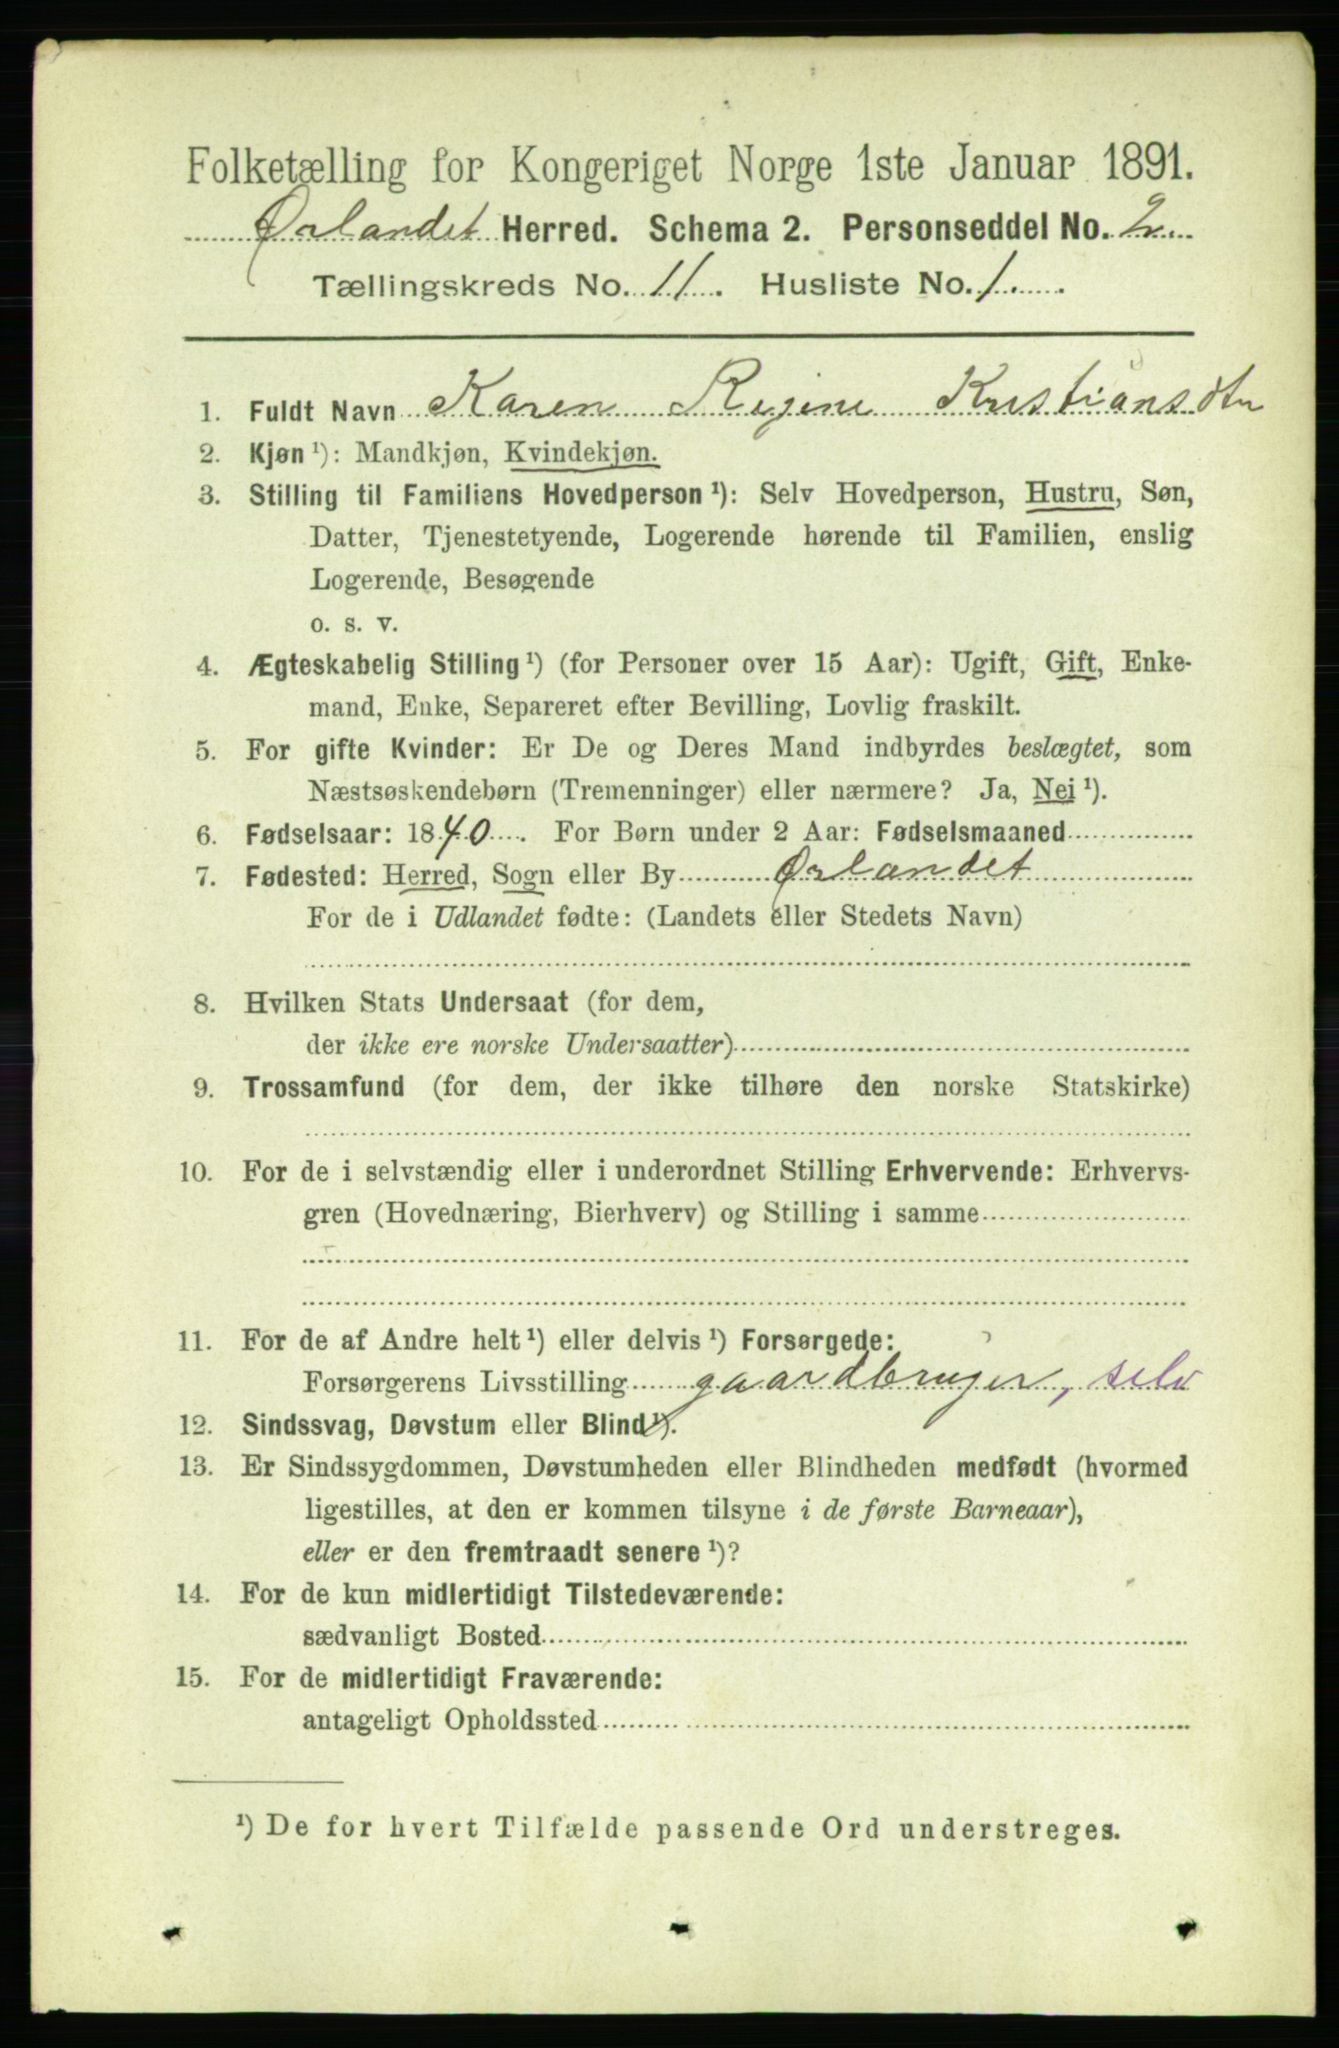 Folketælling for Kongeriget Norge 1ste Januar 1891.
Ørlandet Herred. Schema 2. Personseddel No. 2
Tællingskreds No. 11. Husliste No. 1.
1. Fuldt Navn Karen Regine Kristiansdtr
2. Kjøn ¹): Mandkjøn, Kvindekjøn.
3. Stilling til Familiens Hovedperson ¹): Selv Hovedperson, Hustru, Søn,
Datter, Tjenestetyende, Logerende hørende til Familien, enslig
Logerende, Besøgende
o. s. v.
4. Ægteskabelig Stilling ¹) (for Personer over 15 Aar): Ugift, Gift, Enke-
mand, Enke, Separeret efter Bevilling, Lovlig fraskilt.
5. For gifte Kvinder: Er De og Deres Mand indbyrdes beslægtet, som
Næstsøskendebørn (Tremenninger) eller nærmere? Ja, Nei ¹).
6. Fødselsaar: 1840. For Børn under 2 Aar: Fødselsmaaned
7. Fødested: Herred, Sogn eller By Ørlandet
For de i Udlandet fødte: (Landets eller Stedets Navn)
8. Hvilken Stats Undersaat (for dem,
der ikke ere norske Undersaatter)
9. Trossamfund (for dem, der ikke tilhøre den norske Statskirke)
10. For de i selvstændig eller i underordnet Stilling Erhvervende: Erhvervs-
gren (Hovednæring, Bierhverv) og Stilling i samme
11. For de af Andre helt ¹) eller delvis ¹) Forsørgede:
Forsørgerens Livsstilling gaardbruger, selv
12. Sindssvag, Døvstum eller Blind ¹).
13. Er Sindssygdommen, Døvstumheden eller Blindheden medfødt (hvormed
ligestilles, at den er kommen tilsyne i de første Barneaar),
eller er den fremtraadt senere ¹)?
14. For de kun midlertidigt Tilstedeværende:
sædvanligt Bosted
15. For de midlertidigt Fraværende:
antageligt Opholdssted
¹) De for hvert Tilfælde passende Ord understreges.